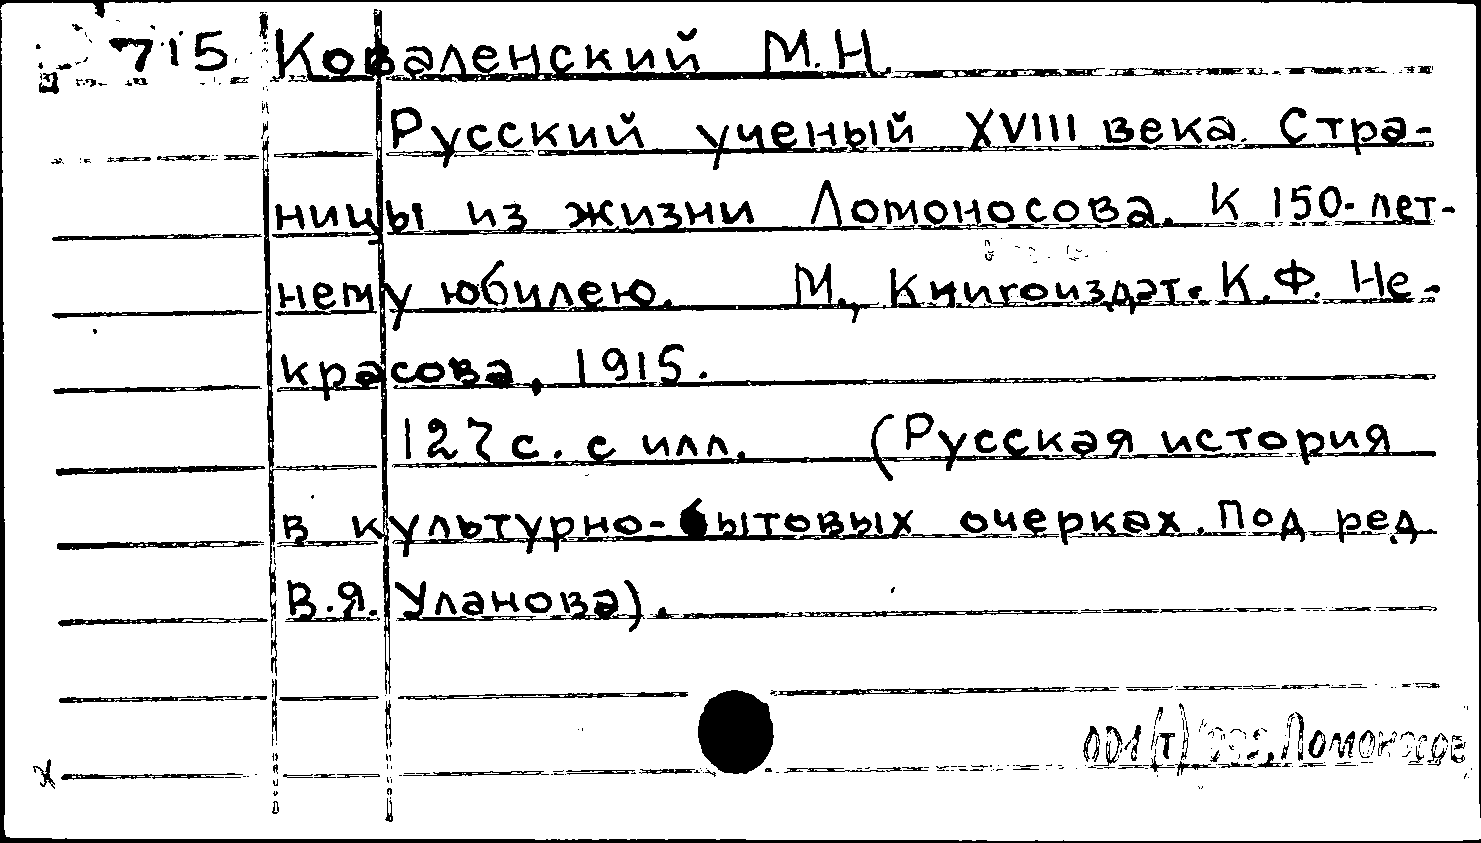 715 Коваленский М.Н.
Русский ученый XVIII века. Стра-
ницы из жизни Ломоносова. К 150-лет-
нему юбилею. М., Книгоиздат. К.Ф. Не-
красова, 1915.
127 с. с илл. (Русская история
в культурно-бытовых очерках. Под ред
В.Я. Уланова).
001(т) Ломоносов